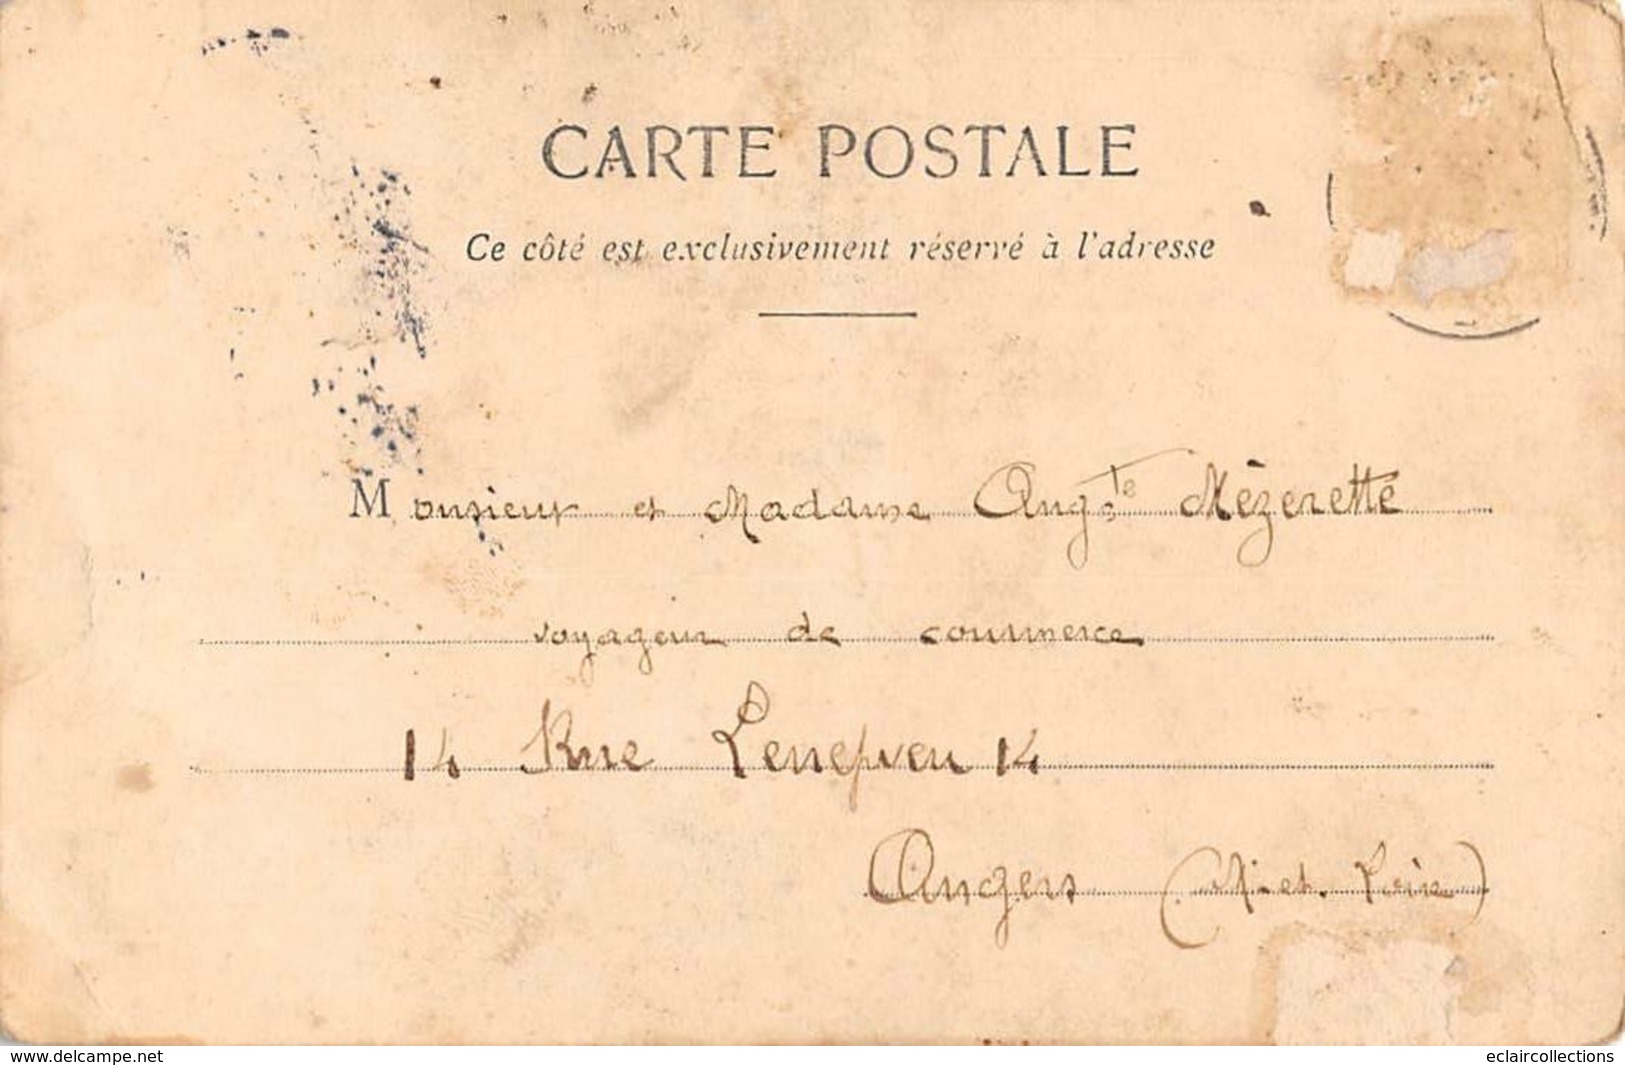 CARTE POSTALE
Ce côté est exclusivement réservé à l'adresse
Monsieur et Madame Aug.te Mézerette
voyageur de commerce
14 Rue Lenepveu 14
Angers (M. et. Loire)
www.delcampe.net eclaircollections